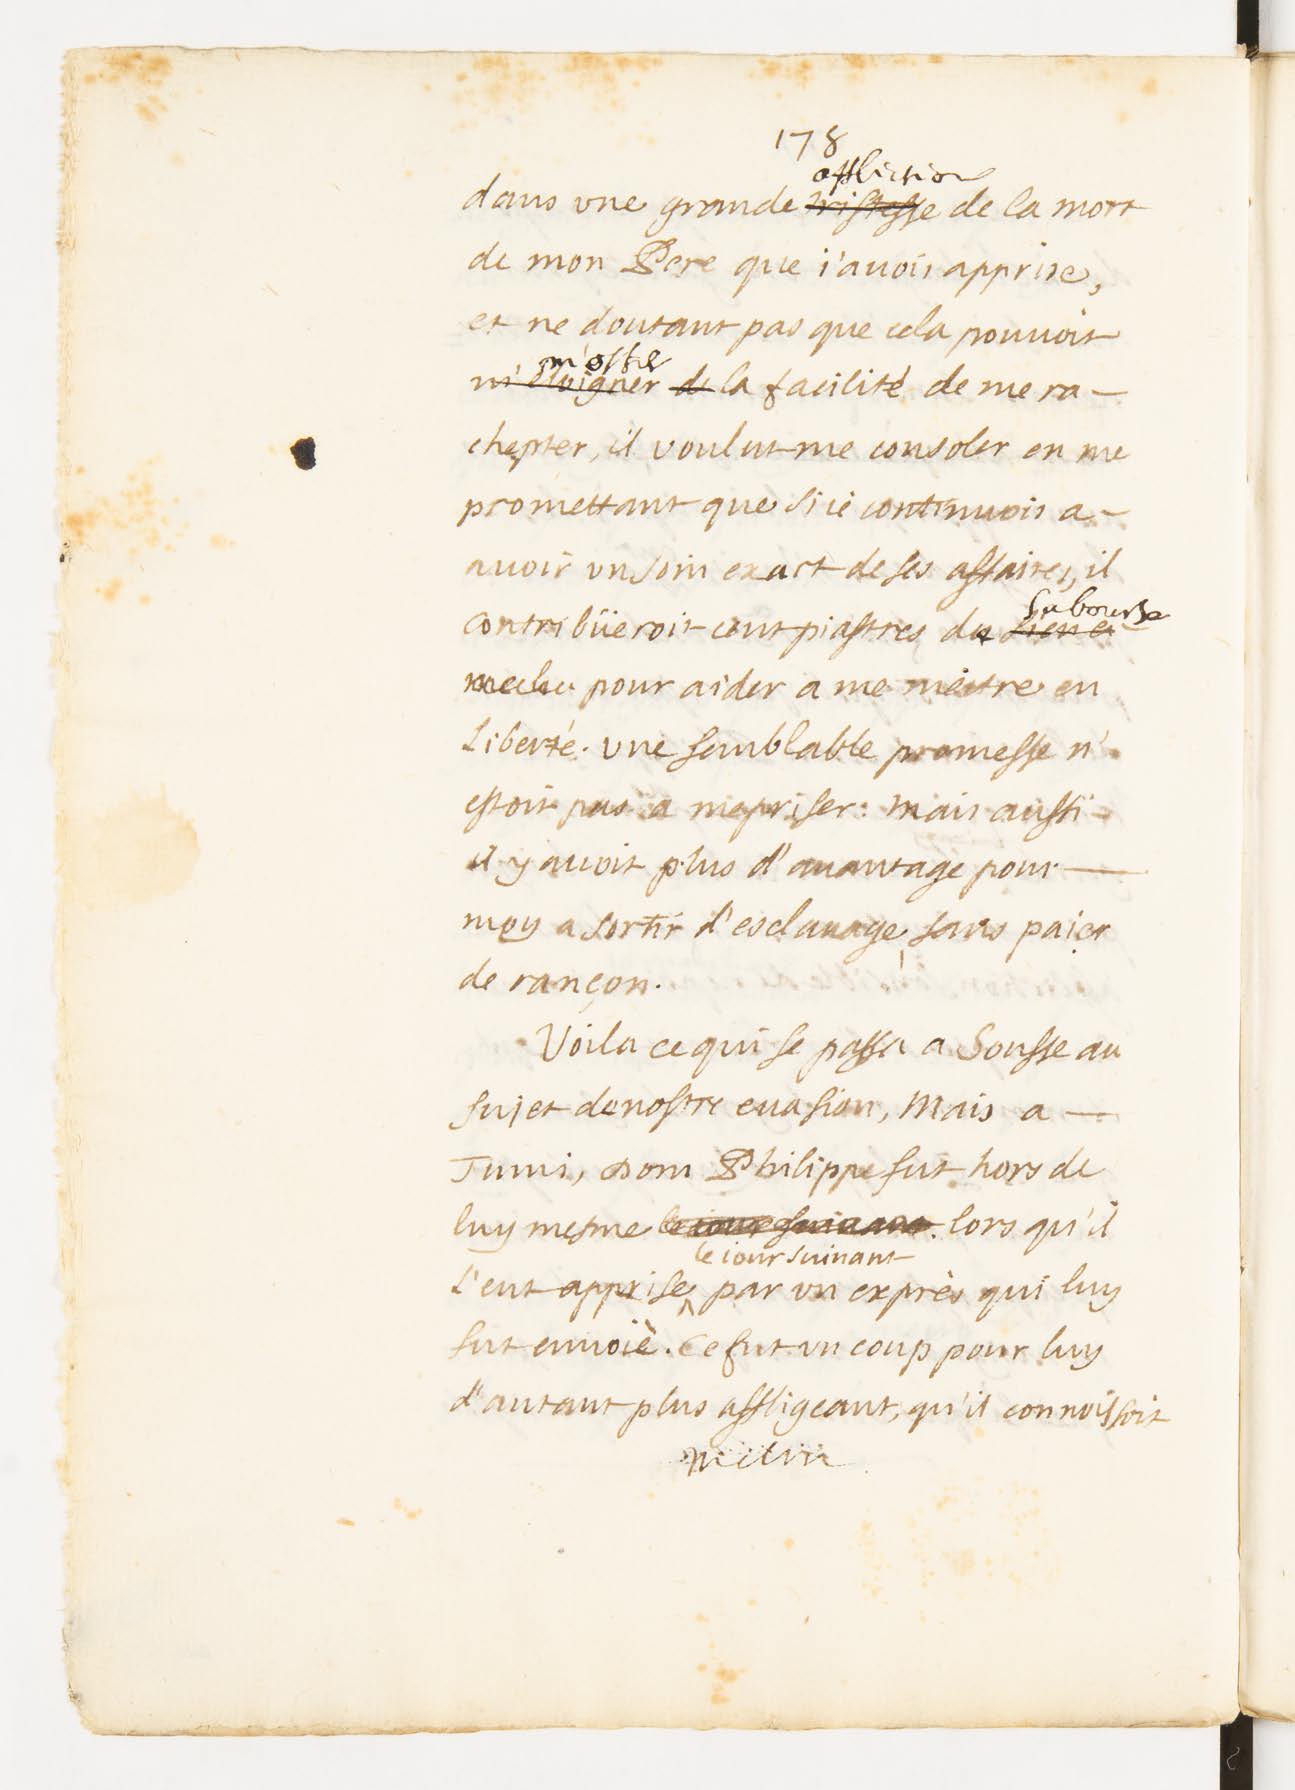 178
affliction
dans vne grande tristesse de la mort
de mon Pere que i'auois apprise,
et ne doutant pas que cela pouuoit
m'oster
m'éloigner de la facilité de me ra-
chepter, il voulut me consoler en me
promettant que si ie continuois a-
auoir vn soin exact de ses affaires, il
sa bourse
contribüeroit cent piastres de
pour aider a me mettre en
Liberté. vne semblable promesse n'
estoit pas a mepriser: mais aussi-
il y auoit plus d'auantage pour
moy a sortir d'esclauage, sans paier
de rançon.
Voila ce qui se passa a Sousse au
sujet de nostre euasion, Mais a
Tunis, Dom Philippe fut hors de
luy mesme le iour suiuant. lors qu'il
le iour suiuant
l'eut apprise ^ par vn exprès qui luy
fut enuoiè. Ce fut vn coup pour luy
d'autant plus affligeant, qu'il connoissoit